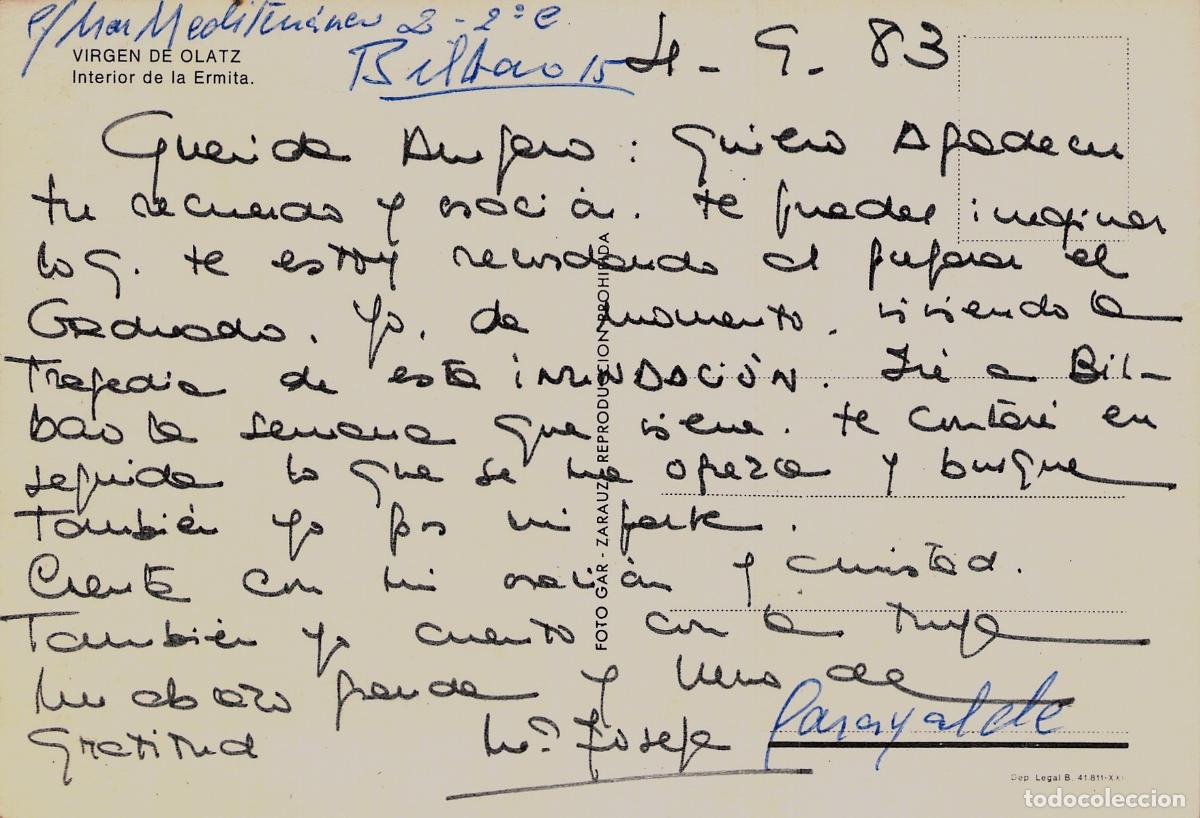 c/ Mar Mediterráneo 2 - 2º C
VIRGEN DE OLATZ
Interior de la Ermita.
Bilbao 15
4 - 9 - 83
Querida Amparo: Quiero Agradecer
tu recuerdo y oración. te puedes imaginar
lo q. te estoy recordando al preparar el
Graduado. Yo, de momento, viviendo la
Tragedia de esta iNUNDACIÓN. Iré a Bil-
bao la semana que viene. te contaré en
seguida lo que se me ofrezca y busque
También yo por mi parte.
Cuenta con mi oración y amistad.
También yo cuento con la tuya
Un abrazo grande y lleno de
Gratitud Mª Josefa Garayalde
FOTO GAR - ZARAUZ - REPRODUCCION PROHIBIDA
Dep. Legal B. 41.811-XXI
todocoleccion